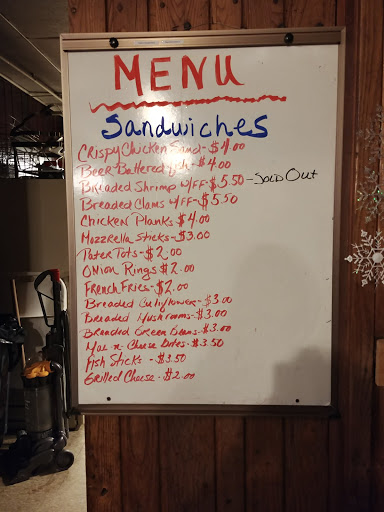 MENU
Sandwiches
Crispy Chicken Sand-$4.00
Beer Battered Fish-$4.00
Breaded Shrimp w/FF-$5.50-Sold Out
Breaded Clams w/FF-$5.50
Chicken Planks $4.00
Mozzrella Sticks-$3.00
Tater Tots-$2.00
Onion Rings $2.00
French Fries-$2.00
Breaded Culiflower-$3.00
Breaded Mushrooms-$3.00
Breaded Green Beans-$3.00
Mac n Cheese Bites-$3.50
Fish Sticks -$3.50
Grilled Cheese-$2.00